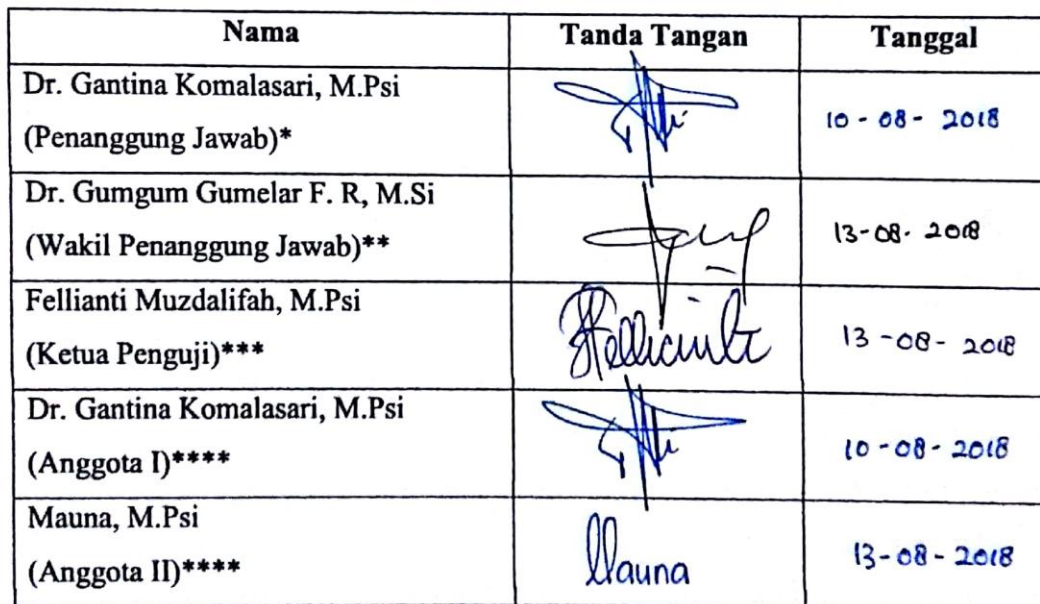 Nama Tanda Tangan Tanggal
Dr. Gantina Komalasari, M.Psi
(Penanggung Jawab)* 10-08-2018
Dr. Gumgum Gumelar F. R, M.Si
(Wakil Penanggung Jawab)** 13-08-2018
Fellianti Muzdalifah, M.Psi
(Ketua Penguji)*** Fellianti 13-08-2018
Dr. Gantina Komalasari, M.Psi
(Anggota I)**** 10-08-2018
Mauna, M.Psi
(Anggota II)**** Mauna 13-08-2018